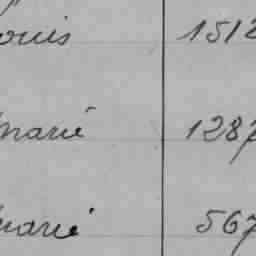 ouis 1512
marié 1287
marié 567